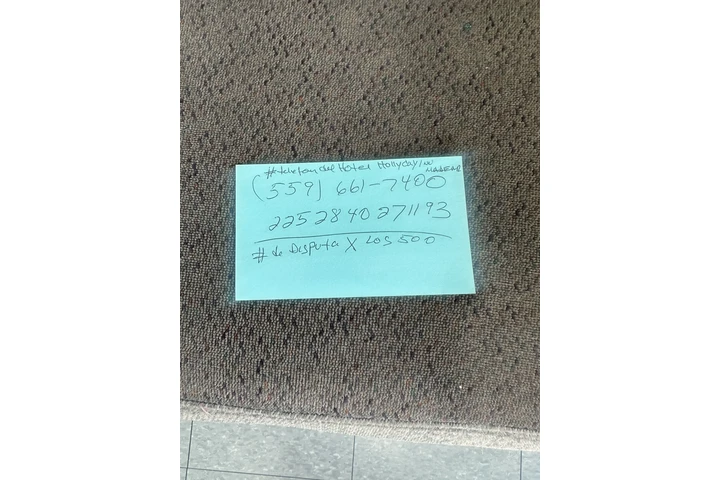 # telefon del Hotel Hollyday inn
MADERA
(559) 661-7400
2252840271193
# de Disputa X LOS 500